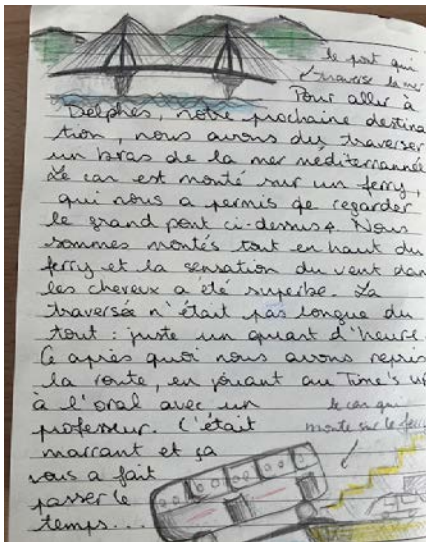 le pont qui
traverse la mer
Pour aller à
Delphes, notre prochaine destina
tion, nous avons dû traverser
un bras de la mer méditerrannée
Le car est monté sur un ferry,
qui nous a permis de regarder
le grand pont ci-dessus. Nous
sommes montés tout en haut du
ferry et la sensation du vent dan
les cheveux a été superbe. La
traversée n'était pas longue du
tout : juste un quart d'heure.
C après quoi nous avons repris
la route, en jouant au Time's up
à l'oral avec un
professeur. C'était
marrant et ça
nous a fait
passer le
temps...
le car qui
monte sur le ferry